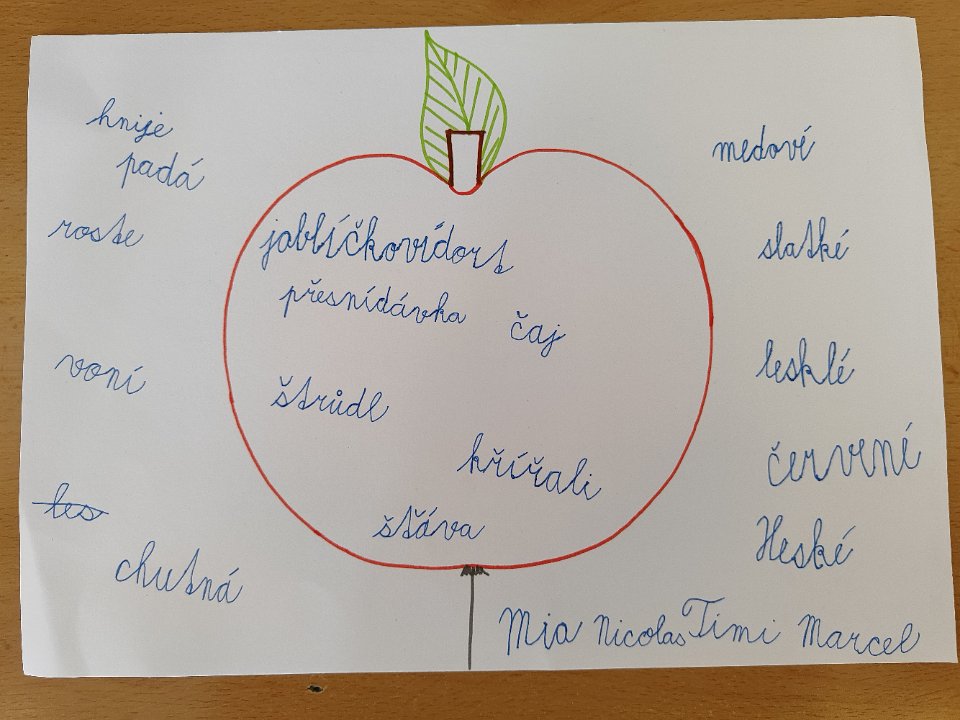 hnije
padá
roste
voní
les
chutná
jablíčkovídort
přesnídávka
čaj
štrůdl
křířali
šťáva
medoví
slatké
lesklé
červené
Heské
Mia Nicolas Timi Marcel